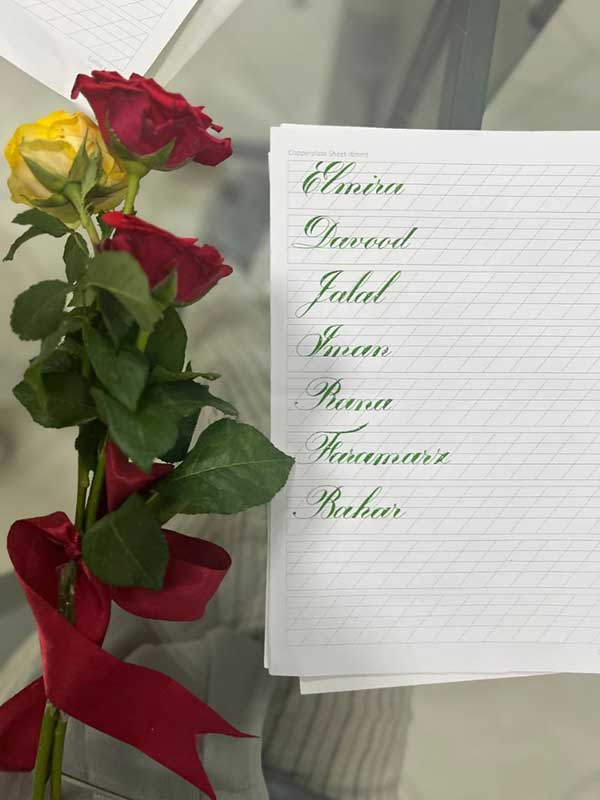 Copperplate Sheet (6mm)
Elmira
Davood
Jalal
Iman
Rana
Faramarz
Bahar